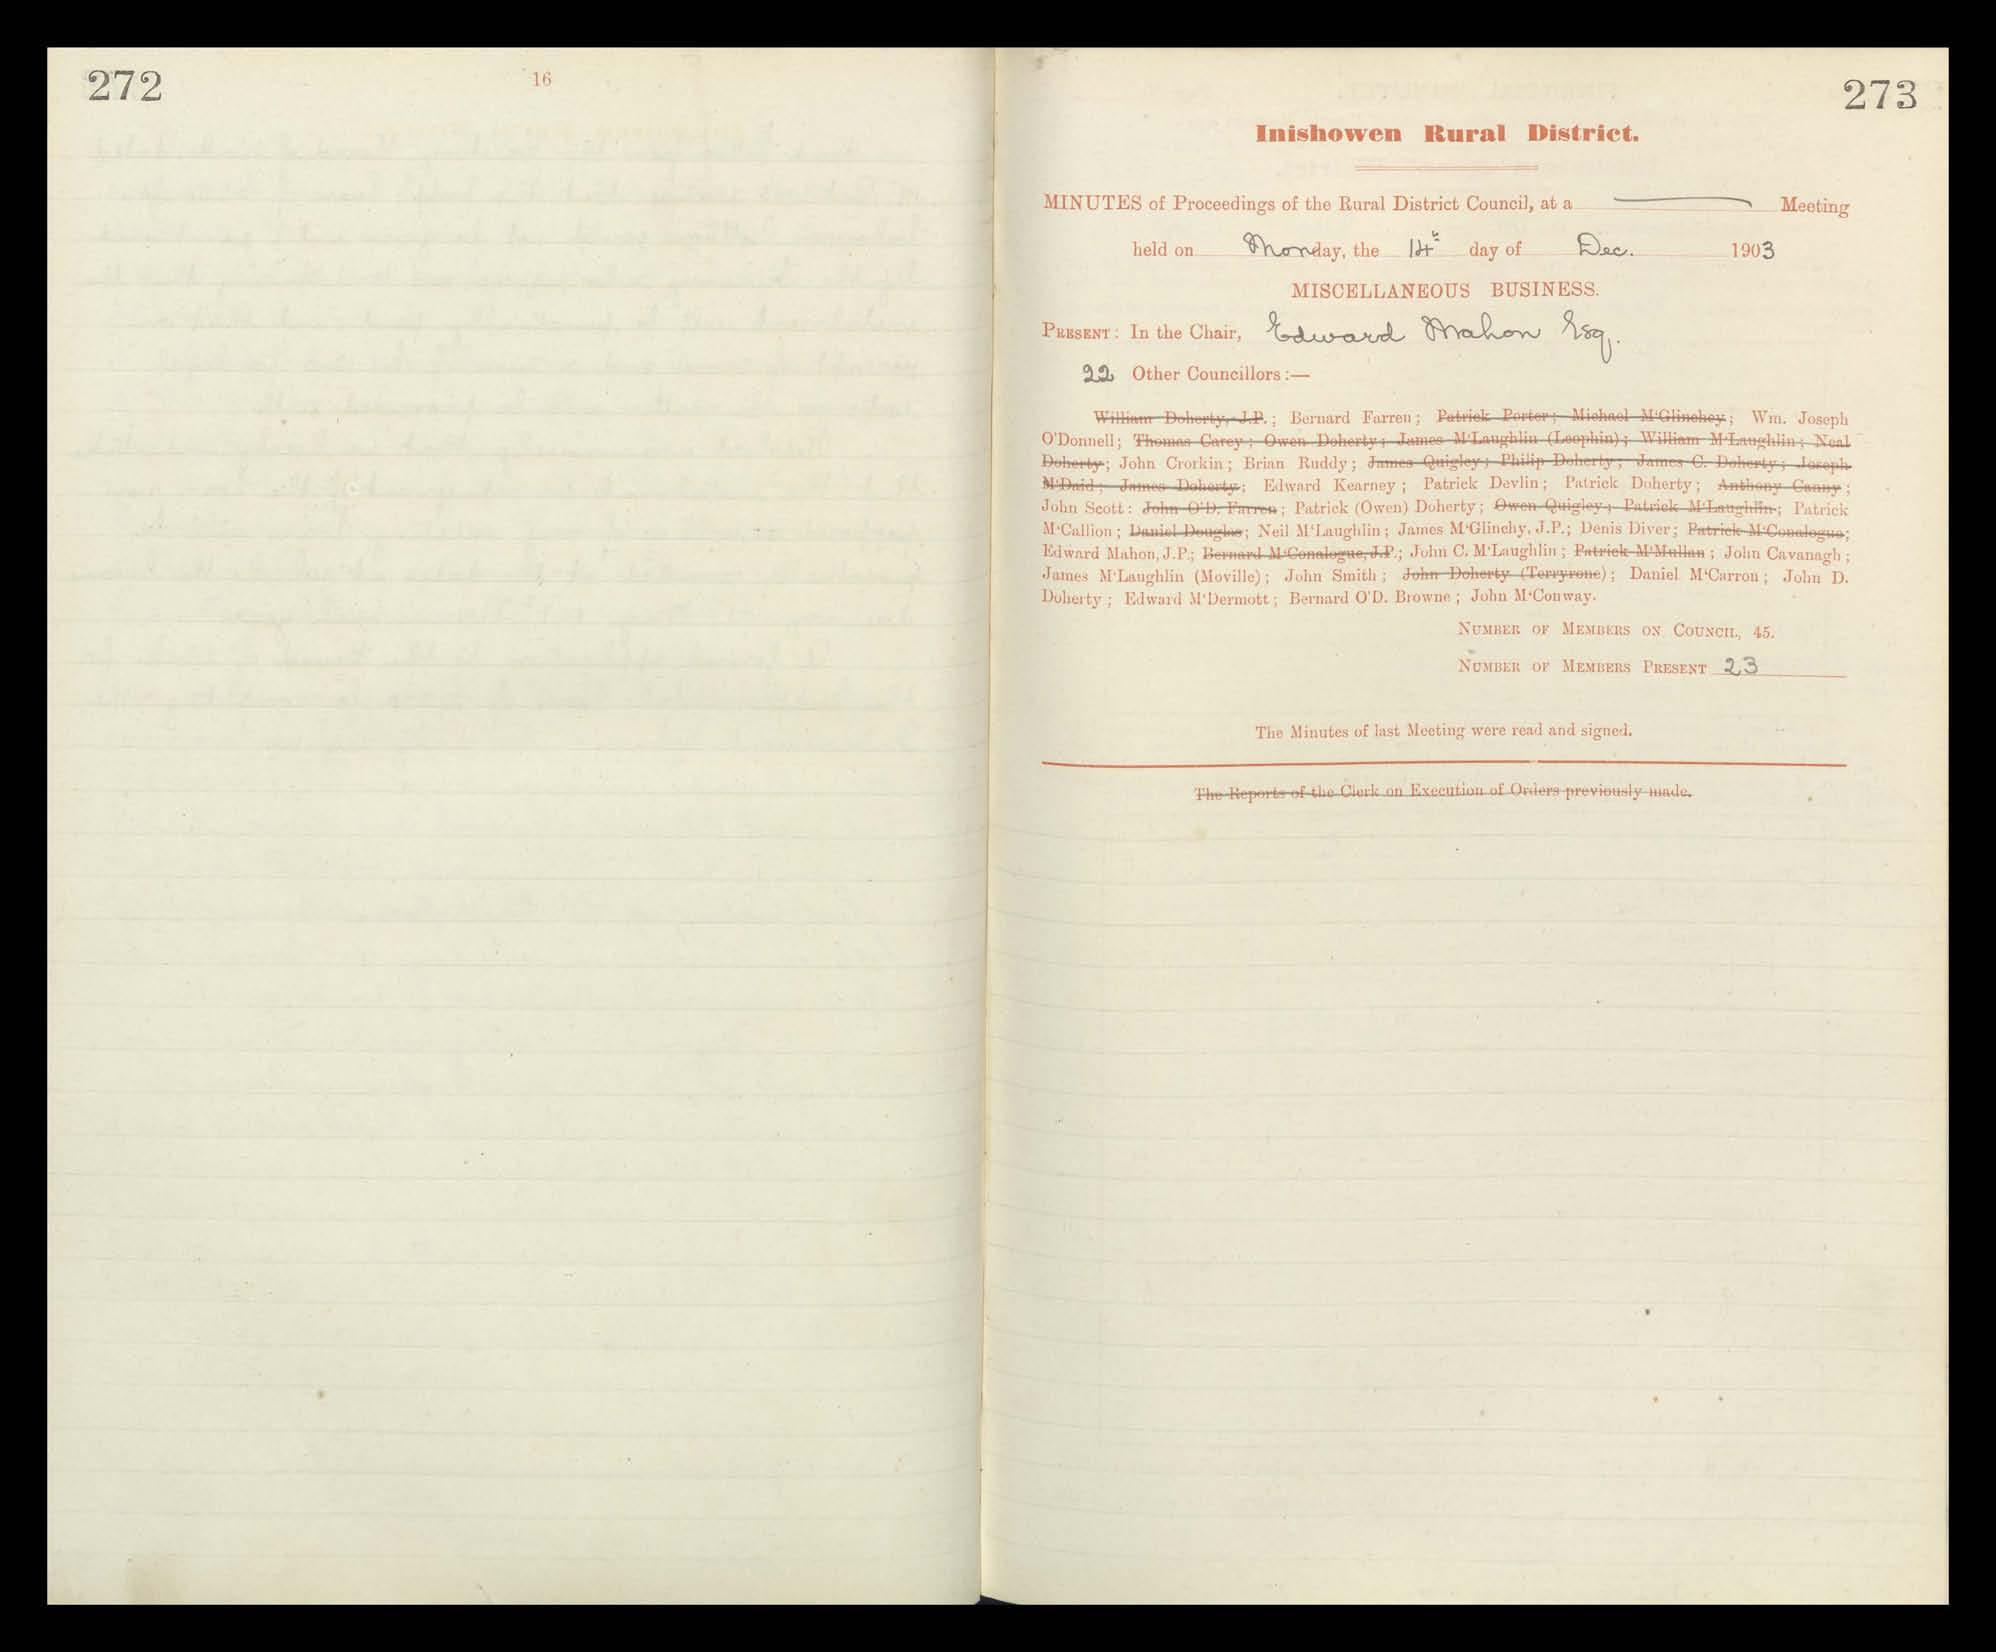 272
16
273
Inishowen Rural District.
MINUTES of Proceedings of the Rural District Council, at a Meeting
held on Monday, the 14th day of Dec. 1903
MISCELLANEOUS BUSINESS.
PRESENT: In the Chair, Edward Mahon Esq.
22 Other Councillors:—
William Doherty, J.P.; Bernard Farren; Patrick Porter; Michael M'Glinchey; Wm. Joseph
O'Donnell; Thomas Carey; Owen Doherty; James M'Laughlin (Leophin); William M'Laughlin; Neal
Doherty; John Crorkin; Brian Ruddy; James Quigley; Philip Doherty; James C. Doherty; Joseph
M'Daid; James Doherty; Edward Kearney; Patrick Devlin; Patrick Doherty; Anthony Canny;
John Scott: John O'D. Farren; Patrick (Owen) Doherty; Owen Quigley; Patrick M'Laughlin; Patrick
M'Callion; Daniel Douglas; Neil M'Laughlin; James M'Glinchy, J.P.; Denis Diver; Patrick M'Conalogue;
Edward Mahon, J.P.; Bernard M'Conalogue, J.P.; John C. M'Laughlin; Patrick M'Mullan; John Cavanagh;
James M'Laughlin (Moville); John Smith; John Doherty (Terryrone); Daniel M'Carron; John D.
Doherty; Edward M'Dermott; Bernard O'D. Browne; John M'Conway.
NUMBER OF MEMBERS ON COUNCIL, 45.
NUMBER OF MEMBERS PRESENT 23
The Minutes of last Meeting were read and signed.
The Reports of the Clerk on Execution of Orders previously made.